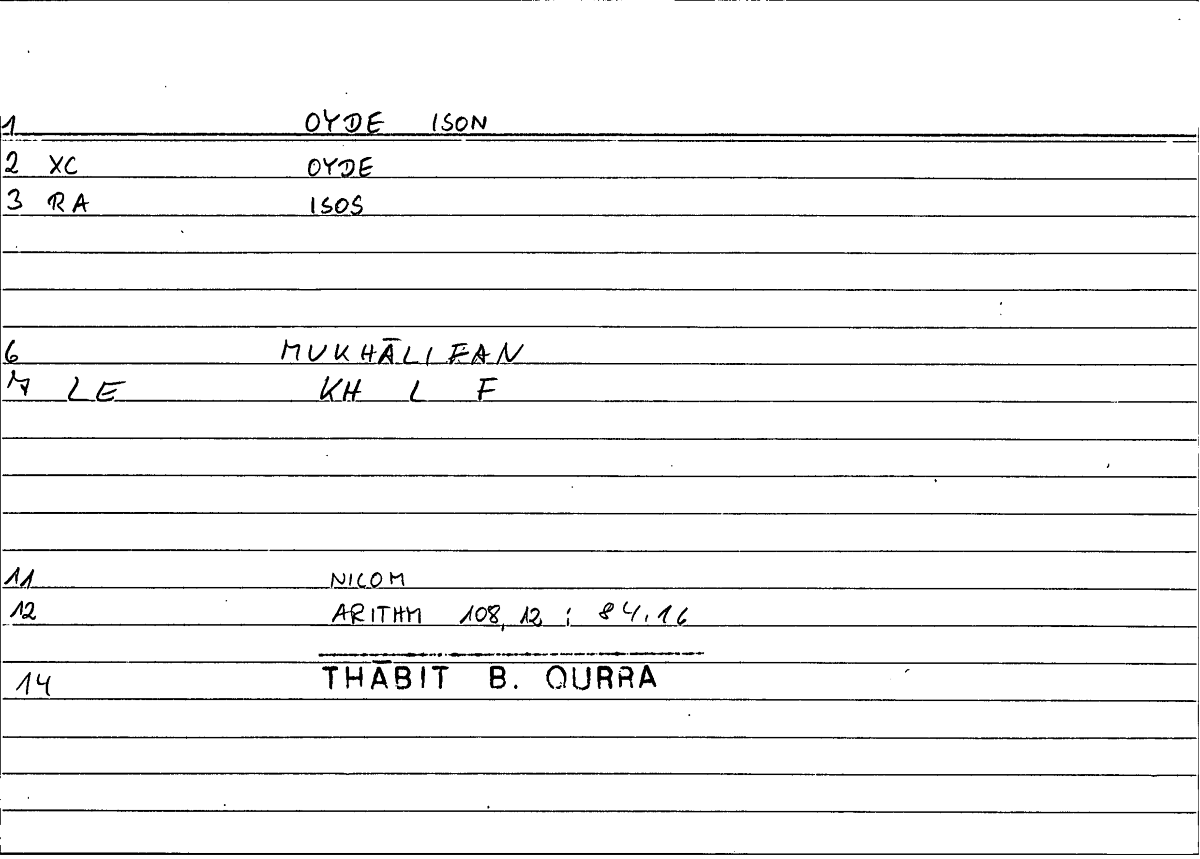 1 OYDE ISON
2 XC OYDE
3 RA ISOS
6 MUKHĀLIFAN
7 LE KH L F
11 NICOM
12 ARITHM 108,12 ; 84.16
14 THĀBIT B. QURRA